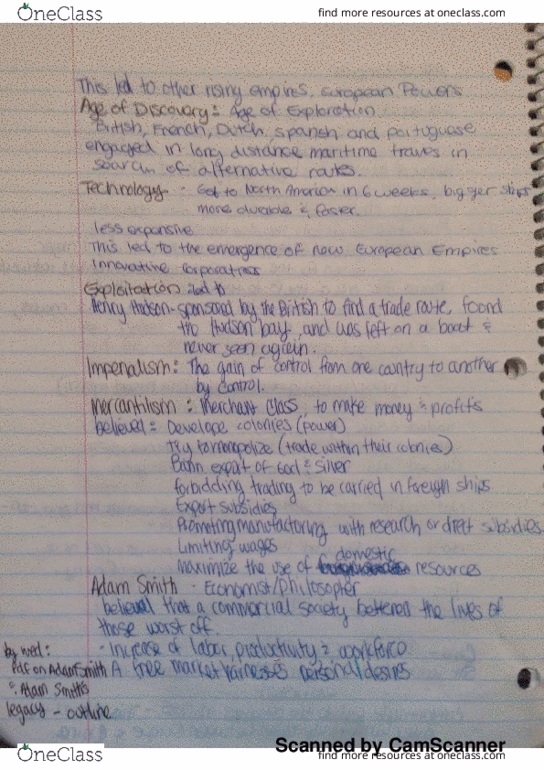 OneClass
find more resources at oneclass.com
This led to other rising empires, European Powers
Age of Discovery: Age of Exploration
British, French, Dutch, Spanish and Portuguese
engaged in long distance maritime travels in
search of alternative routes.
Technology - Got to North America in 6 weeks, bigger ships
more durable & faster.
less expensive
This led to the emergence of new European Empires
Innovative Corporations
Exploitation: led to
Henry Hudson - sponsored by the British to find a trade route, found
the Hudson bay, and was left on a boat &
never seen again.
Imperialism: The gain of control from one country to another
by control.
Mercantilism: Merchant Class, to make money & profits
believed = Develope colonies (power)
Try to monopolize (trade within their colonies)
Bann export of God & silver
forbidding trading to be carried in foreign ships
Export subsidies
Promoting manufacturing with research or direct subsidies
Limiting wages
domestic
Maximize the use of resources
Adam Smith - Economist/philosopher
believed that a commercial society bettered the lives of
those worst off.
- Increase of labor, productivity = workforce
A free market harnesses personal desires
by wed:
pdf on Adam Smith
& Adam Smiths
legacy - outline
Scanned by CamScanner
OneClass
find more resources at oneclass.com